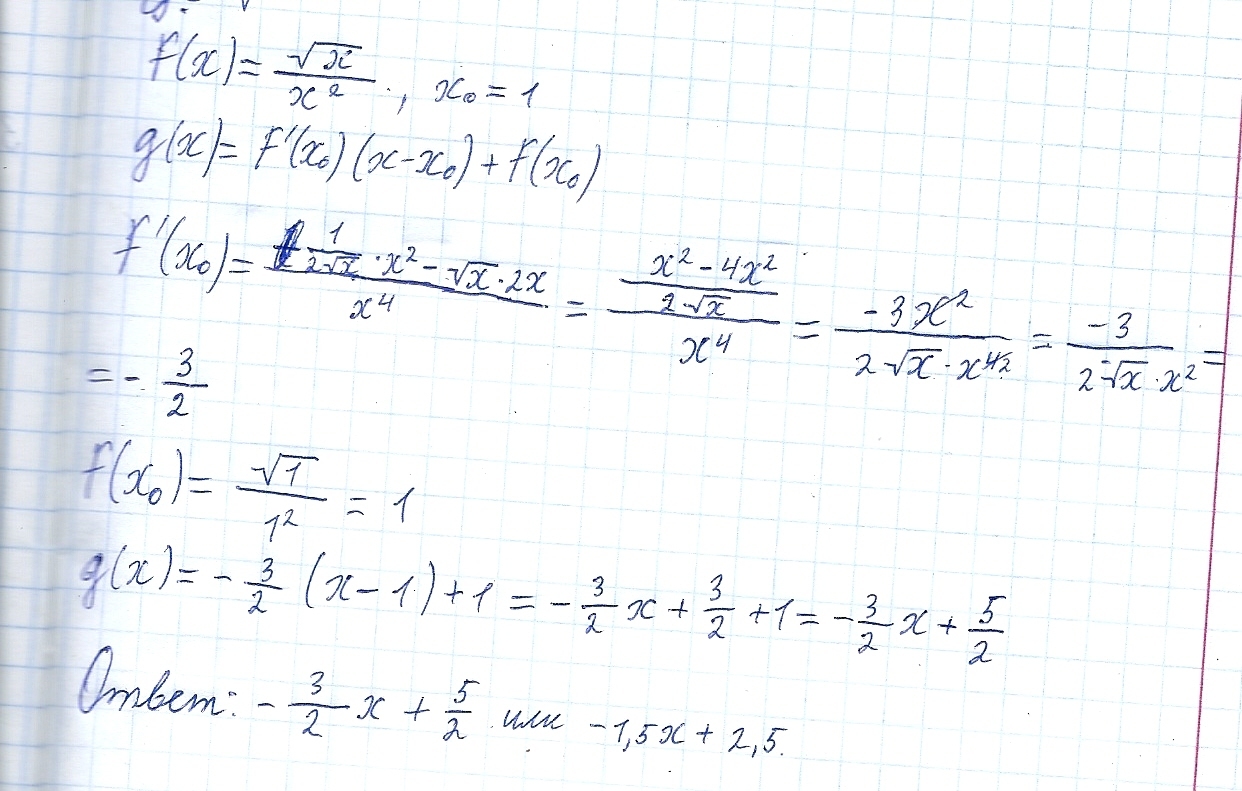 f(x) = √x / x², x₀ = 1
g(x) = f'(x₀)(x-x₀) + f(x₀)
f'(x₀) = (1/(2√x) · x² - √x · 2x) / x⁴ = ((x² - 4x²) / (2√x)) / x⁴ = -3x² / (2√x · x⁴²) = -3 / (2√x · x²) =
= - 3/2
f(x₀) = √1 / 1² = 1
g(x) = - 3/2 (x-1) + 1 = - 3/2 x + 3/2 + 1 = - 3/2 x + 5/2
Ответ: - 3/2 x + 5/2 или -1,5x + 2,5.